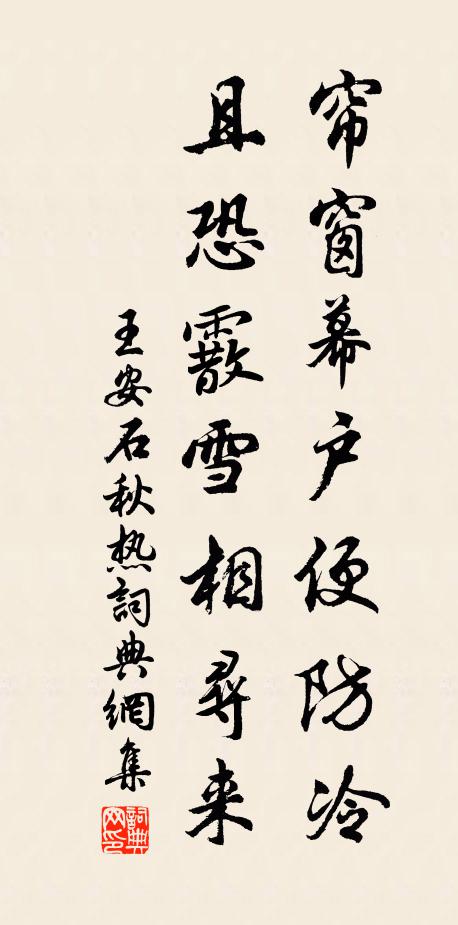 帘窗幕户便防冷
且恐霰雪相尋来
王安石秋热詞典網集
詞典網印